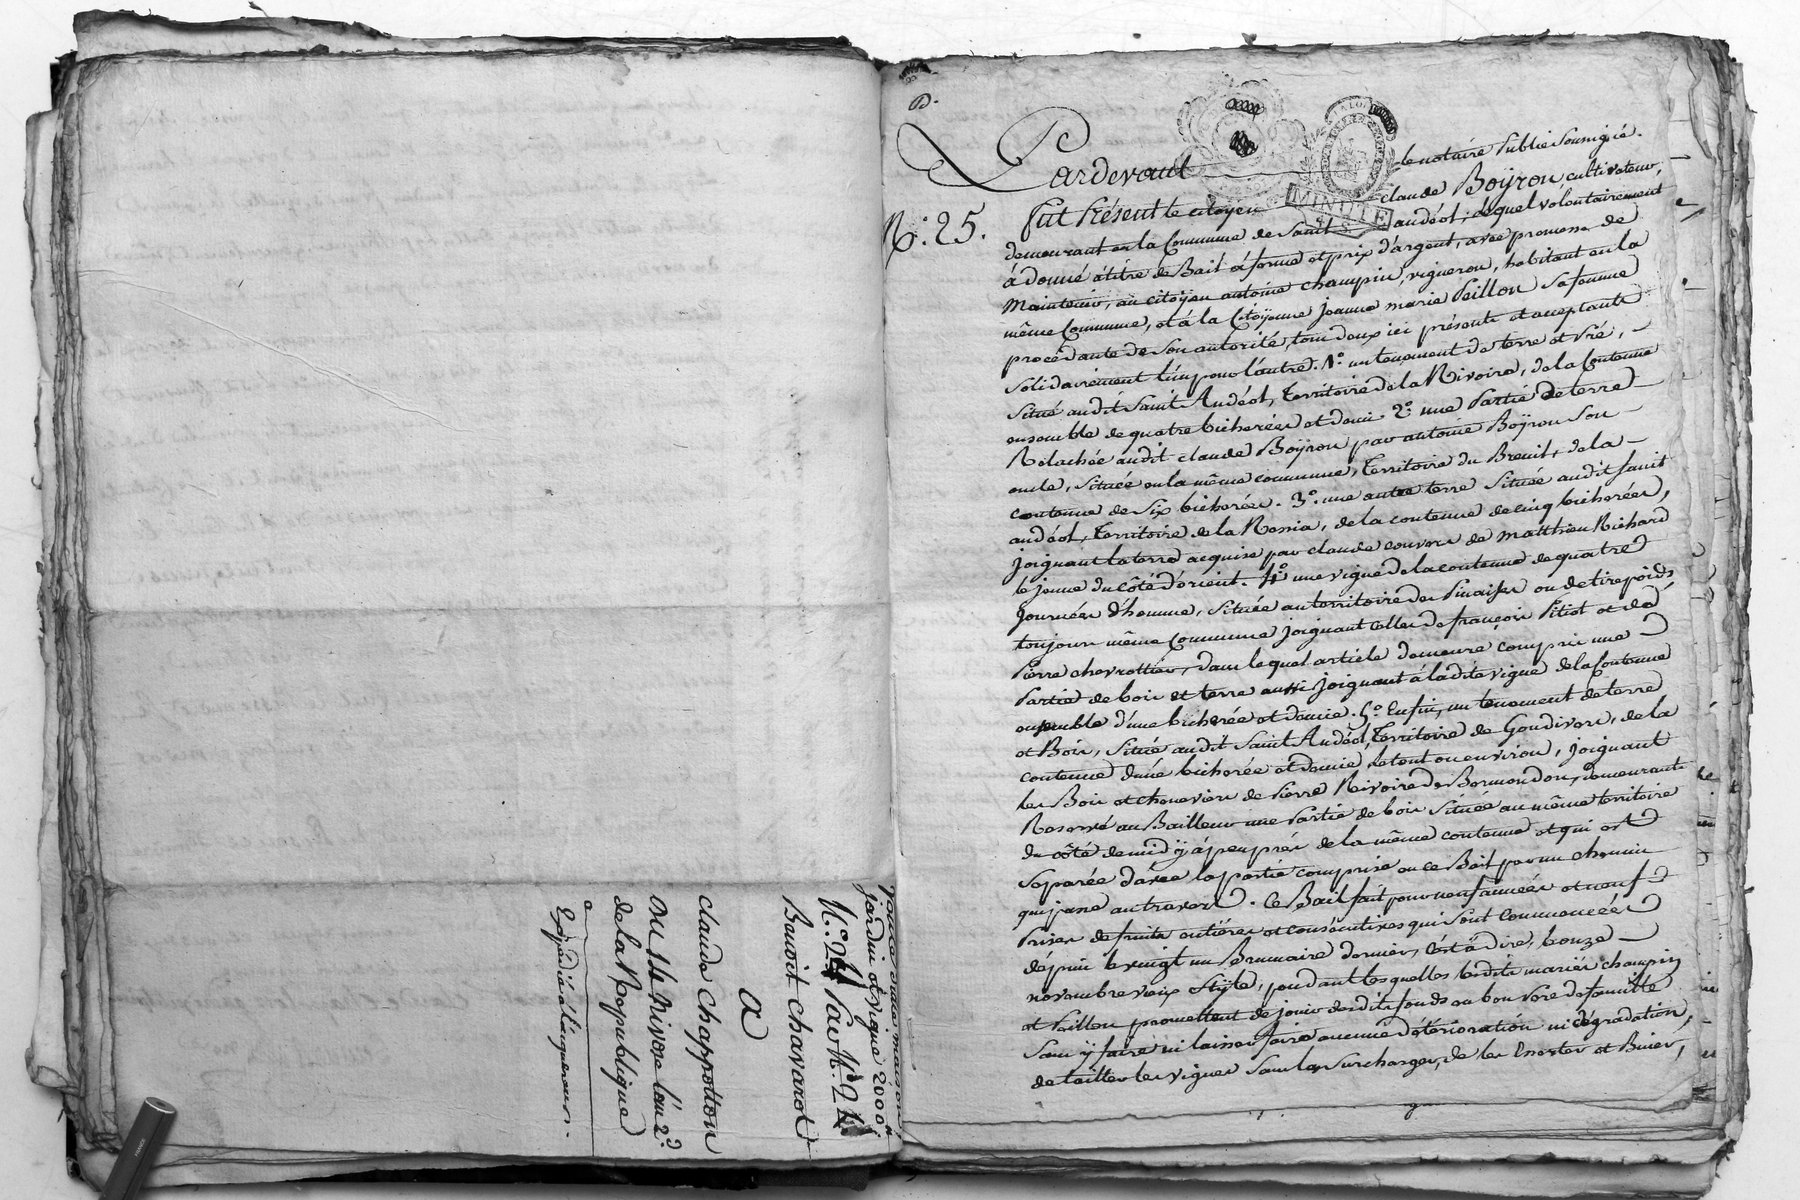 Vente d'une maison
jardin et vigne 2000 ᵗᵗ
N.° 24 Par N.° 24
Benoit Chavarot
a
claude Chapotton
Du 14 Nivose l'an 2.d
de la Republique
Expédié à l'acquéreur.
D.
Pardevant le notaire Public Soussigné.
N.° 25. fut Présent le citoyen claude Boÿron cultivateur,
demeurant en la Commune de Saint andéol; lequel volontairement
à donné à titre de Bail à ferme et prix d'argent, avec promesse de
Maintenir, au citoÿen antoine champin, vigneron, habitant en la
même Commune, et à la Citoÿenne Jeanne marie Peillon sa femme
procédante de son autorité, tous deux ici présents et acceptants
solidairement l'un pour l'autre. 1.° un tenement de terre et Pré,
situé audit Saint Andéol, Territoire de la Rivoire, de la Contenue
ensemble de quatre bicherées et demie. 2.° une Partie de terre
Relachée audit claude Boÿron par antoine Boÿron son
oncle, située en la même commune, Territoire du Breuil, de la
contenue de six bicherées. 3.° une autre terre située audit Saint
andéol, Territoire de la Rossia, de la contenue de cinq bicherées,
joignant la terre acquise par claude couvers de matthieu Richard
le jeune du côté d'orient. 4.° une vigne de la contenue de quatre
Journées d'homme, située au territoire des Pinaises ou de tirepoids,
toujours même Commune joignant celles de françois Pitiot et de
Pierre chevrottier, dans lequel article demeure compris une
Partie de bois et terre aussi joignant à ladite vigne de la Contenue
ensemble d'une bicherée et demie. 5.° Enfin, un tenement de terre
et Bois, situé audit Saint Andéol, Territoire de Goudivon, de la
contenue d'une bicherée et demie le tout ou environ, joignant
les Bois et chenevier de Pierre Rivoire de Bermondon, demeurant
Reservé au Bailleur une Partie de bois située au même territoire
du côté de midÿ à peu près de la même contenue et qui est
séparée d'avec la partie comprise en ce Bail par un chemin
qui passe au travers. Ce Bail fait pour neuf années et neuf
Prises de fruits entières et consécutives qui sont commencées
depuis le vingt un Brumaire dernier, c'est à dire, l'onze
novembre vieux Stÿle, pendant lesquelles lesdits mariés champin
et Peillon promettent de jouir desdits fonds en bon Pere de famille
sans ÿ faire ni laisser faire aucune déterioration ni dégradation,
de tailler les vignes sans les surcharger, de les Enerber et Biner,